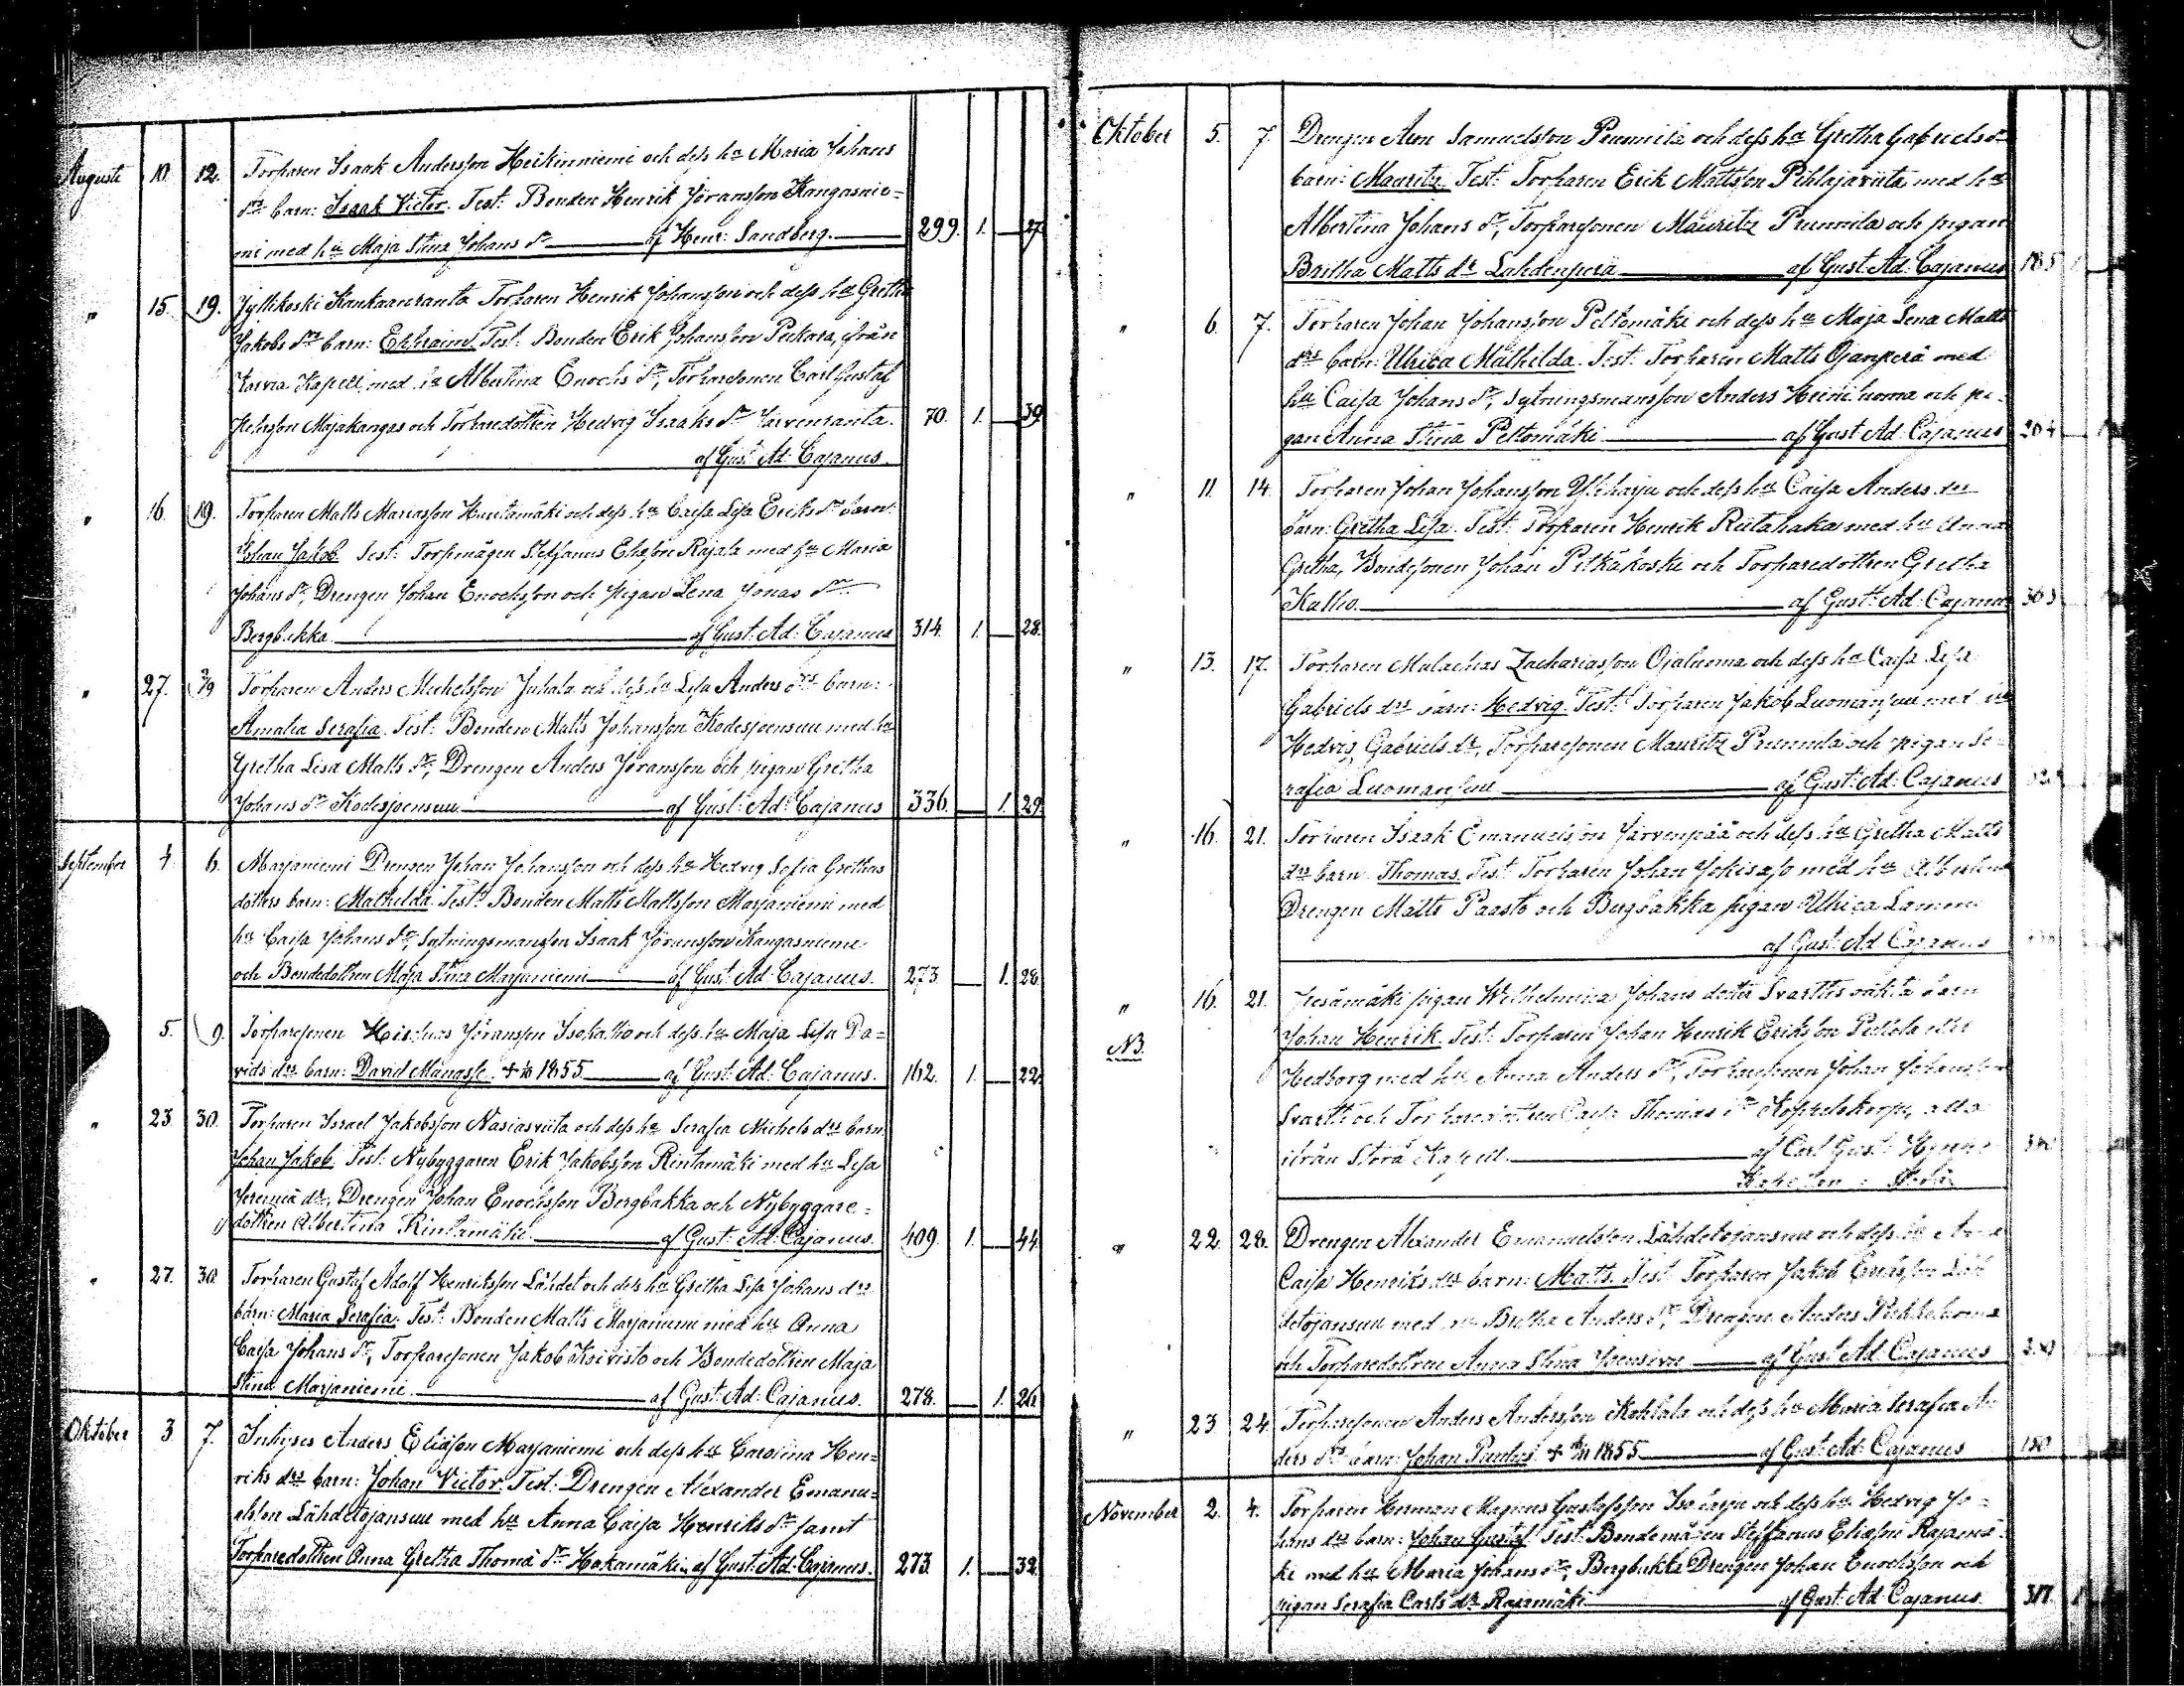 Augusti 10. 12. Torparen Isaak Andersson Heikinniemi och dess hu Maria Johans
drs barn: Isaak Victor. Test: Bonden Henrik Jöransson Kangasnie=
mi med hu Maja Stina Johans dr af Henr: Sandberg. 299. 1. 27.
" 15. 19. Jyllikoski Kankaanranta Torparen Henrik Johansson och dess hu Gretha
Jakobs drs barn: Ephraim. Test: Bonden Erik Johansson Peckara, ifrån
Karvia Kapell, med hu Albertina Enochs dr, Torparesonen Carl Gustaf
Majakangas och Torparedottren Hedvig Isaaks dr Järvenranta. 70. 1. 39.
af Gust: Ad: Cajanus.
" 16. 19. Torparen Matts Mariasson Hautamäki och dess hu Caisa Lisa Eriks drs barn:
Johan Jakob. Test: Torpmågen Steffanus Eliasson Rajala med hu Maria
Johans dr, Drengen Johan Enochsson och pigan Lena Jonas dr
Bergbakka. af Gust: Ad: Cajanus 314. 1. 28.
" 27. 2/9 Torparen Anders Michelsson Juhala och dess hu Lisa Anders drs barn:
Amalia Serafia. Test: Bonden Matts Johansson Kodesjoensuu med hu
Gretha Lisa Matts dr, Drengen Anders Jöransson och pigan Gretha
Johans dr Kodesjoensuu. af Gust: Ad: Cajanus 336. 1. 29.
September 4. 6. Marjaniemi Drengen Johan Johansson och dess hu Hedvig Sofia Grethas
dotters barn: Mathilda. Test: Bonden Matts Mattsson Marjaniemi med
hu Caisa Johans dr, Sytningsmansson Isaak Jöransson Kangasniemi
och Bondedottren Maja Stina Marjaniemi af Gust: Ad: Cajanus. 273. 1. 28.
5. 9. Torparesonen Jöransson Isokallio och dess hu Maja Lisa Da=
vids drs barn: David Manasse. 1855 af Gust: Ad: Cajanus. 162. 1. 22.
" 23. 30. Torparen Israel Jakobsson Nasiasviita och dess hu Serafia Michels drs barn:
Johan Jakob. Test: Nybyggaren Erik Jakobsson Rintamäki med hu Lisa
Jeremiä dr, Drengen Johan Enochsson Bergbakka och Nybyggare=
dottren Albertina Rintamäki. af Gust: Ad: Cajanus. 409. 1. 44.
" 27. 30. Torparen Gustaf Adolf Henriksson Lähdet och dess hu Gretha Lisa Johans drs
barn: Maria Serafia. Test: Bonden Matts Marjaniemi med hu Anna
Caisa Johans dr, Torparesonen Jakob Koivisto och Bondedottren Maja
Stina Marjaniemi. af Gust: Ad: Cajanus. 278. 1. 26.
Oktober 3. 7. Inhyses Anders Eliasson Marjaniemi och dess hu Carolina Hen=
riks drs barn: Johan Victor. Test: Drengen Alexander Emanu=
elsson Lähdetojansuu med hu Anna Caisa Henriks dr samt
Torparedottren Anna Gretha Thomä dr Hakamäki. af Gust: Ad: Cajanus. 273. 1. 32.
Oktober 5. 7. Drengen Aron Samuelsson Prunnila och dess hu Gretha Gabriels drs
barn: Mauritz. Test: Torparen Erik Mattsson Pihlajaviita med hu
Albertina Johans dr, Torparesonen Mauritz Prunnila och pigan
Britha Matts dr Lahdenperä af Gust: Ad: Cajanus 185
" 6. 7. Torparen Johan Johansson Peltomäki och dess hu Maja Lena Matts
drs barn: Ulrica Mathilda. Test: Torparen Matts Ojanperä med
hu Caisa Johans dr, Sytningsmansson Anders Heiniluoma och pi=
gan Anna Stina Peltomäki af Gust: Ad: Cajanus 204
" 11. 14. Torparen Johan Johansson Yliharju och dess hu Caisa Anders drs
barn: Gretha Lisa. Test: Torparen Henrik Riitahaka med hu Anna
Gretha, Bondesonen Johan Pitkäkoski och Torparedottren Gretha
Kallio. af Gust: Ad: Cajanus 303
" 13. 17. Torparen Malachias Zachariasson Ojaluoma och dess hu Caisa Lisa
Gabriels drs barn: Hedvig. Test: Torparen Jakob Luomansuu med hu
Hedvig Gabriels dr, Torparesonen Mauritz Prunnila och pigan Se=
rafia Luomansuu af Gust: Ad: Cajanus
" 16. 21. Torparen Isaak Emanuelsson Järvenpää och dess hu Gretha Matts
drs barn: Thomas. Test: Torparen Johan Jokisalo med hu Albertina
Drengen Matts Paasto och Bergbakka pigan Ulrica Lammi
af Gust: Ad: Cajanus
" 16. 21. pigan Wilhelmina Johans dotter Svarttis oäkta barn
NB. Johan Henrik. Test: Torparen Johan Henrik Eriksson eller
Hedborg med hu Anna Anders dr, Torparesonen Johan Johansson
Svartti och Torparedottren Caisa Thomas dr Koppelokorpi, alla
ifrån Storå Kapell. af Carl Gust:
" 22. 28. Drengen Alexander Emanuelsson Lähdetojansuu och dess hu Anna
Caisa Henriks drs barn: Matts. Test: Torparen Jakob Eriksson Läh
detojansuu med hu Britha Anders dr, Drengen Anders
och Torparedottren Anna Stina af Gust: Ad: Cajanus
" 23. 24. Torparesonen Anders Andersson Kohlala och dess hu Maria Serafia An
ders drs barn: Johan Paulus. 1855 af Gust: Ad: Cajanus 180
November 2. 4. Torparen Herman Magnus Gustafsson Isoharju och dess hu Hedvig Jo=
hans drs barn: Johan Gustaf. Test: Bondemågen Steffanus Eliasson Rajamä
ki med hu Maria Johans dr, Bergbakka Drengen Johan Enochsson och
pigan Serafia Carls dr Rajamäki af Gust: Ad: Cajanus. 317. 1